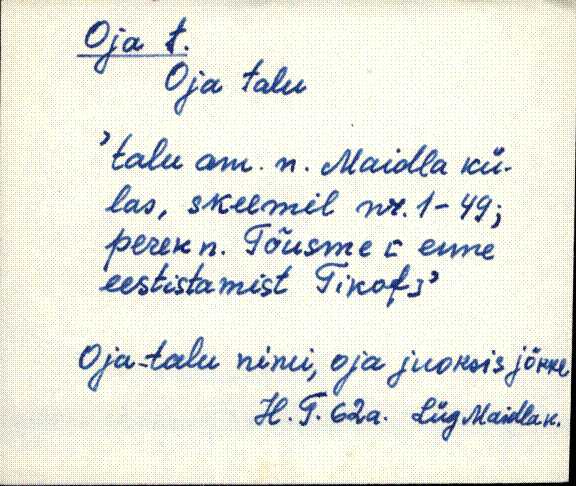 Oja t.
Oja talu
'talu am. n. Maidla kü-
las, skeemil nr. 1-49;
perek n. Tõusme [ enne
eestistamist Tikof]'
Oja-talu nimi, oja juoksis jõkke
H. T. 62a. Lüg Maidla k.